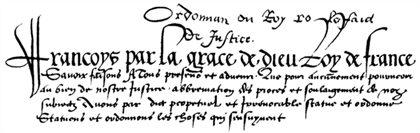 Ordonnan du Roy le faid
De Justice.
Francoys par la grace de dieu Roy de france
Savoir faisons A tous presens et advenir Que pour aucunement pourveoir
au bien de nostre Justice abbreviation des proces et soulagement de noz
subiectz Avons par edit perpetuel et irrevocable statue et ordonne
Statuons et ordonnons les choses qui sensuyvent